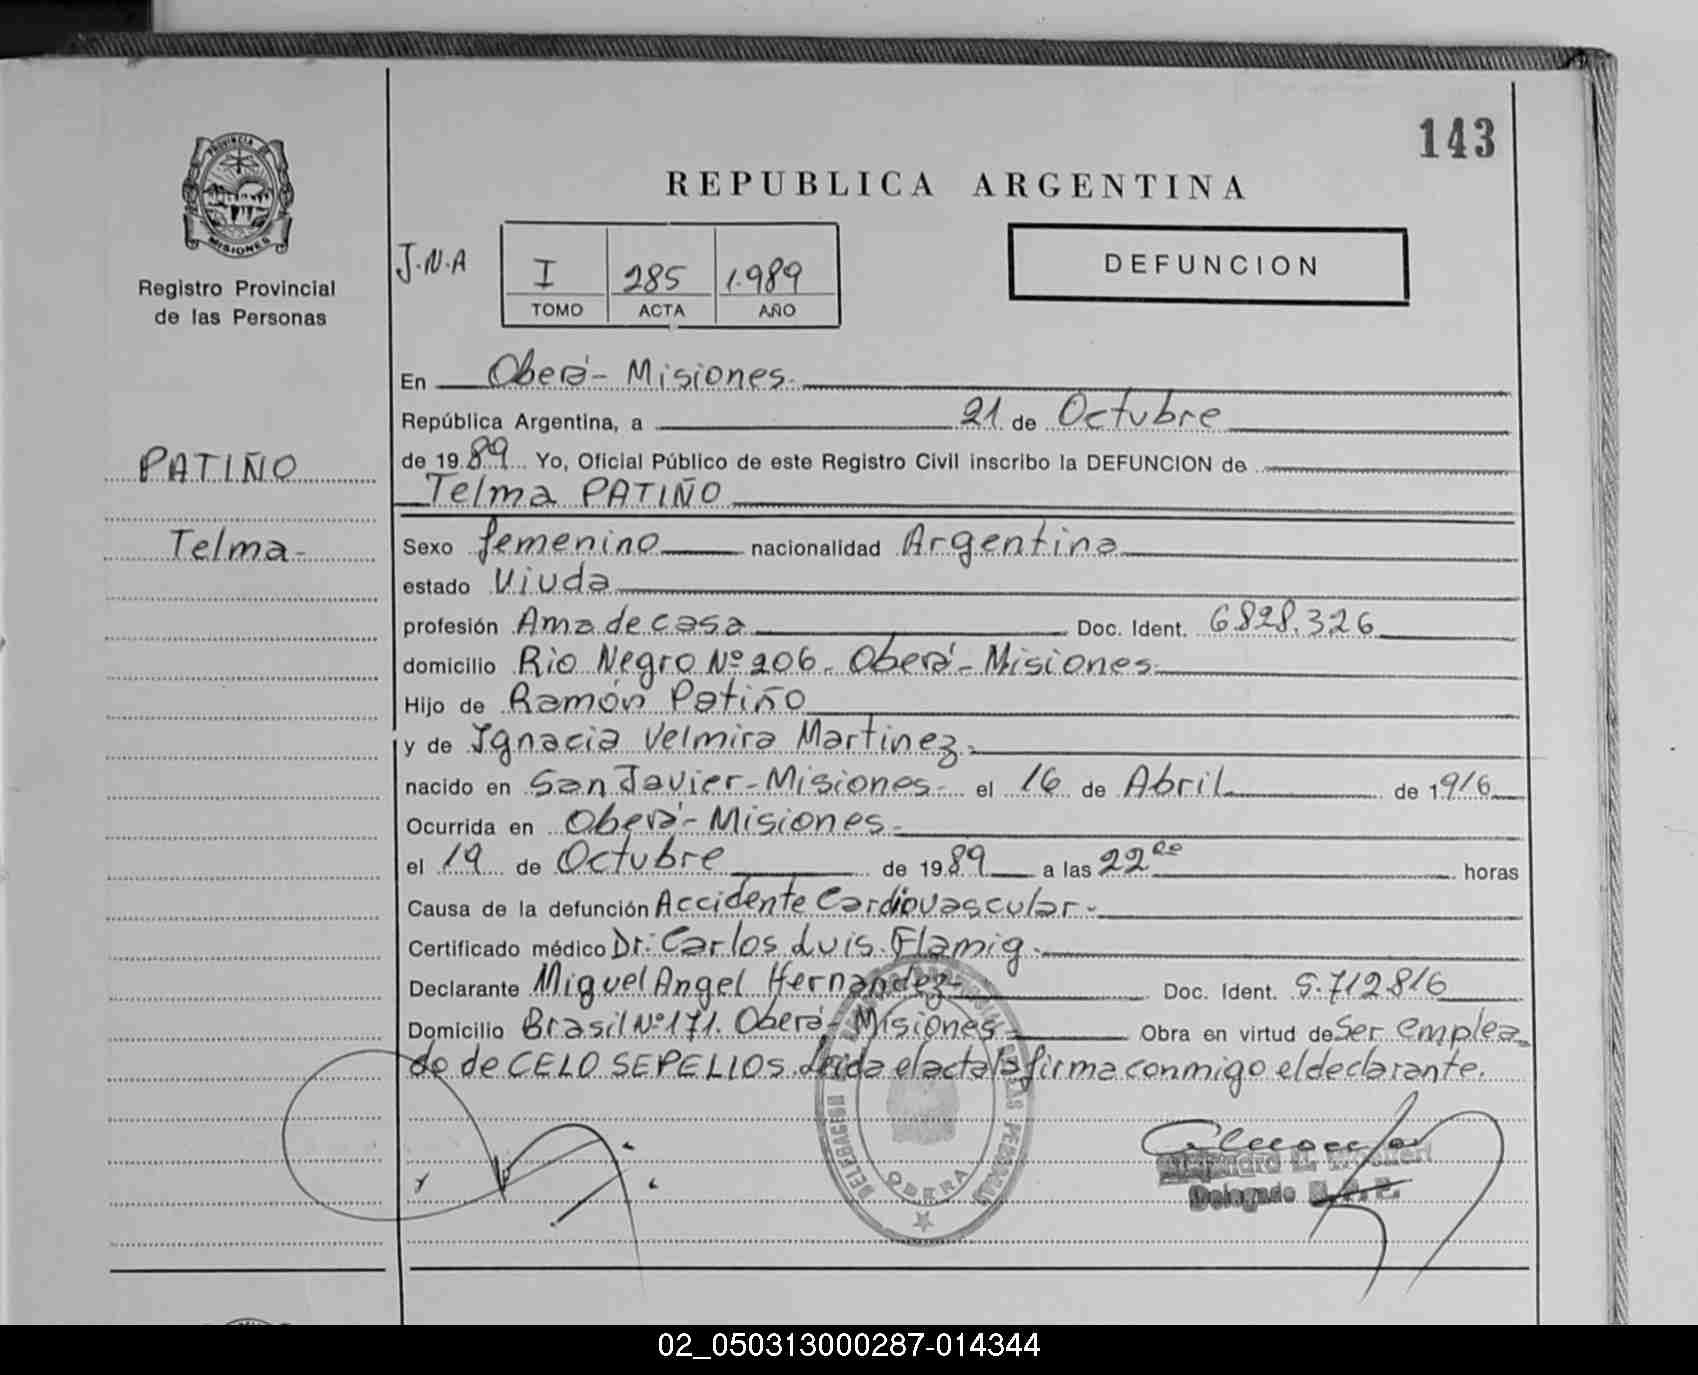 143
PROVINCIA DE
MISIONES
REPUBLICA ARGENTINA
Registro Provincial
de las Personas
J.N.A
I 285 1.989
TOMO ACTA AÑO
DEFUNCION
En Oberá - Misiones.
República Argentina, a 21 de Octubre
PATIÑO
de 19 89 Yo, Oficial Público de este Registro Civil inscribo la DEFUNCION de
Telma PATIÑO
Telma-
Sexo femenino nacionalidad Argentina
estado Viuda
profesión Ama de casa Doc. Ident. 6828.326
domicilio Rio Negro Nº 206. Oberá - Misiones
Hijo de Ramón Patiño
y de Ignacia Velmira Martinez.
nacido en San Javier - Misiones- el 16 de Abril de 1916
Ocurrida en Oberá - Misiones.
el 19 de Octubre de 19 89 a las 22 oo horas
Causa de la defunción Accidente Cardiovascular-
Certificado médico Dr. Carlos Luis Flamig.
Declarante Miguel Angel Hernandez- Doc. Ident. 5.712816
Domicilio Brasil Nº 171. Oberá - Misiones Obra en virtud de Ser emplea
do de CELO SEPELIOS. Leida el acta la firma conmigo el declarante.
DELEGACION REGISTRO PROVINCIAL DE LAS PERSONAS
OBERA
Delegado
02_050313000287-014344